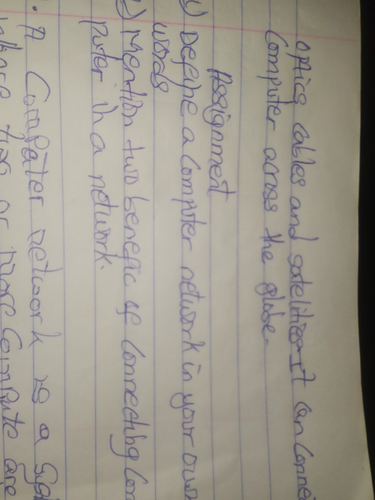 optics cables and satellites. It can connec
Computer across the globe
Assignment
Define a Computer network in your own
words
Mention two benefic of Connecting Com
puter in a network.
A Computer network is a
where two or more Compute are